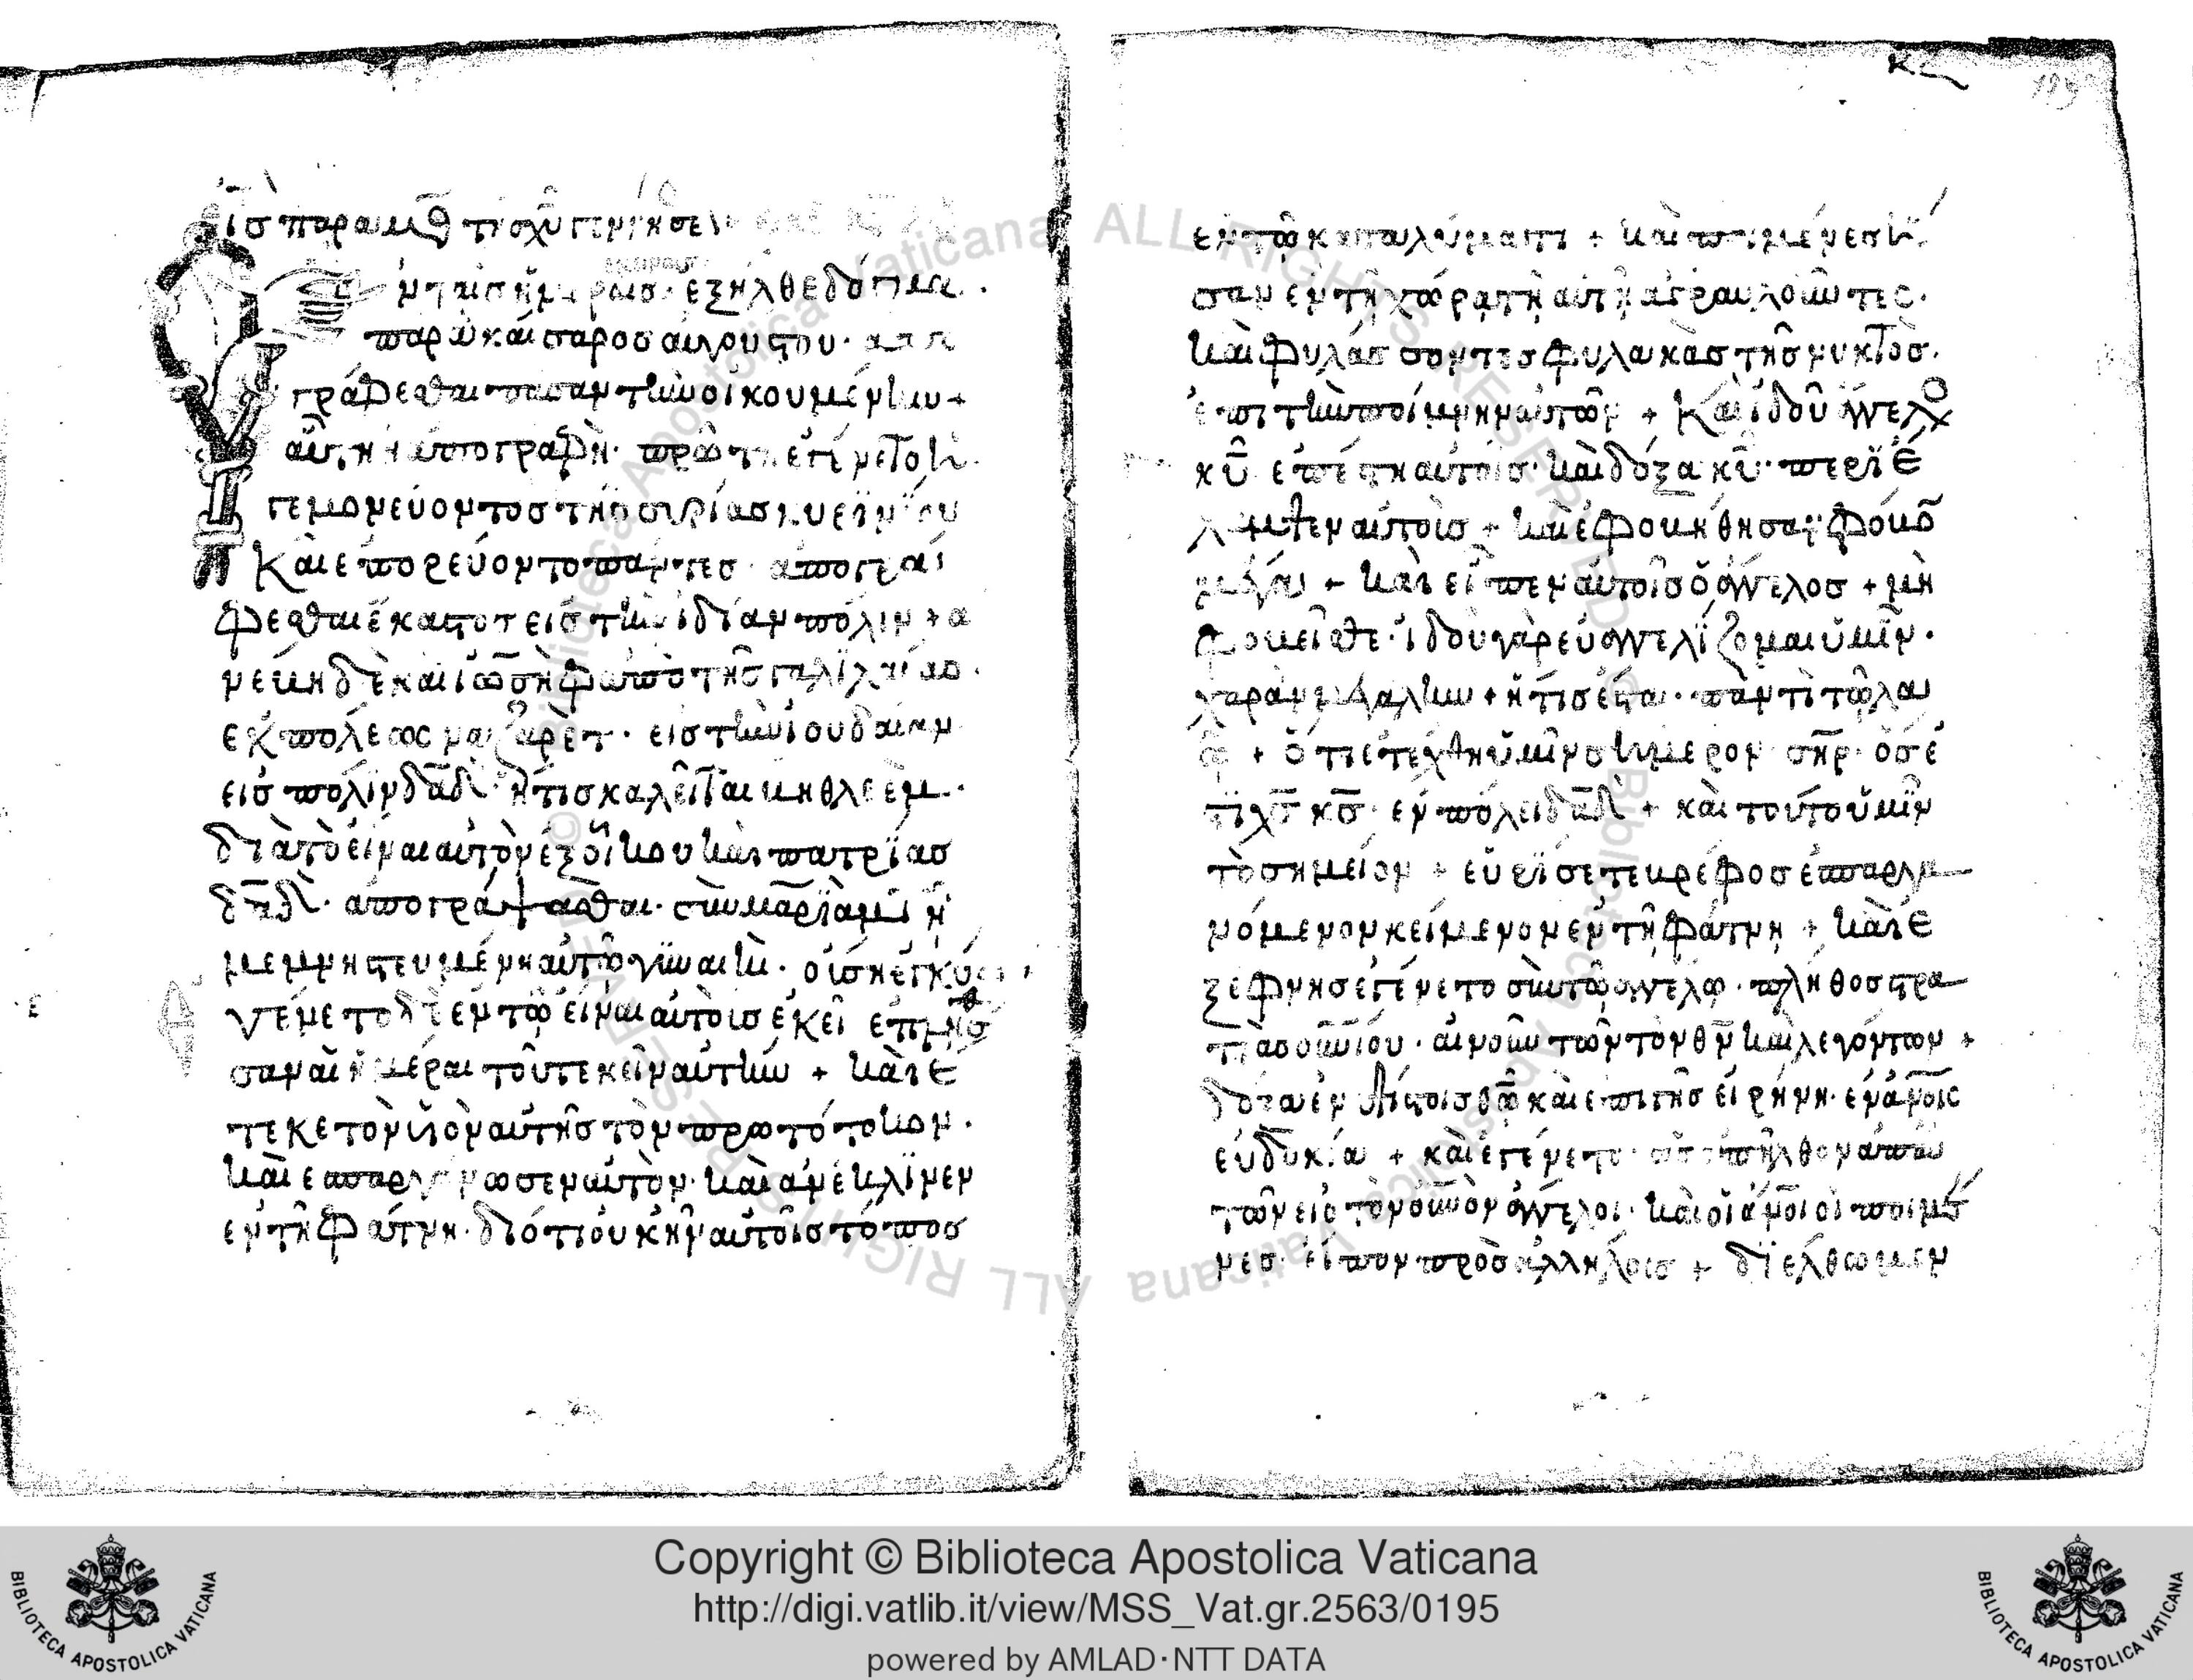 εισ παραμο τησ χυ γεννησε
εκειναισ
ν ταισ ημεραισ· εξηλθε δογμα·
παρὰ καίσαροσ αυγούστου· απο
γράφεσθαι πασαν τὴν οἰκουμένην +
αὕτη ἡ ἀπογραφὴ· πρώτη ἐγένετο ἡ
γεμονεύοντοσ τῆσ συρίασ κυρϊνΐου
Καὶ ἐπορεύοντο πάντεσ ἀπογρά
φεσθαι ἕκαστοσ εἰσ τὴν ἰδίαν πόλιν + ἀ
νέβη δὲ καὶ ἰωσὴφ ἀπὸ τῆσ γαλϊλαίασ·
ἐκ πόλεωσ ναζαρὲτ· εἰσ τὴν ἰουδαίαν
εἰσ πόλϊν δαδ· ἥτισ καλεῖται βηθλεέμ·
διὰ τὸ εἶναι αὐτὸν ἐξ οἴκου καὶ πατρϊασ
δαδ· ἀπογράψασθαι· σὺν μαρϊὰμ τῆ
μεμνηστευμένη αὐτῶ γϋναικὶ· οὔση ἐγκύω
γένετο δὲ ἐν τῶ εἶναι αὐτοὺσ ἐκεῖ ἐπλήσθη
σαν αἱ ἡμέραι τοῦ τεκεῖν αὐτὴν + καὶ ἔ
τεκε τὸν ϋἱὸν αὐτῆσ τὸν πρωτότοκον·
καὶ ἐσπαργάνωσεν αὐτὸν· καὶ ἀνέκλϊνεν
ἐν τῆ φάτνη· διότι οὐκ ἦν αὐτοῖσ τόποσ
κζ
199
ἐν τῶ καταλύματι + καὶ ποιμένεσ ἦ
σαν ἐν τῆ χώρα τῆ αὐτῆ ἀγραυλοῦντεσ·
καὶ φυλάσσοντεσ φυλακὰσ τῆσ νυκτὸσ·
ἐπὶ τὴν ποίμνην αὐτῶν + Καὶ ἰδοῦ ἄγγελο
κῦ ἐπέστη αὐτοῖσ· καὶ δόξα κῦ· περϊέ
λαμψεν αὐτοὺσ + καὶ ἐφοβήθησαν φόβο
μέγαν + καὶ εἶπεν αὐτοῖσ ὁ ἄγγελοσ + μὴ
φοβεῖσθε· ἰδοῦ γὰρ εὐαγγελΐζομαι ὑμῖν·
χαρὰν μεγάλην + ἥτισ ἔσται· παντὶ τῶ λα
ῶ + ὅτι ἐτέχθη ὑμῖν σήμερον σηρ· ὅσ ἐ
στϊ χσ κσ· ἐν πόλει δαδ + καὶ τοῦτο ὑμῖν
τὸ σημεῖον + εὑρϊσετε βρέφοσ ἐσπαργα
νόμενον κείμενον ἐν τῆ φάτνη + καὶ ἐ
ξέφνησ ἐγένετο σὺν τῶ ἀγγέλω· πλῆθοσ στρα
τιᾶσ οὐνίου· αἰνούντων τὸν θν καὶ λεγόντων +
δόξα ἐν ὑψίστοισ θῶ καὶ ἐπὶ γῆσ εἰρήνη· ἐν ἀνοισ
εὐδοκία + καὶ ἐγένετο ὡσ ἀπῆλθον ἀπ αὐ
τῶν εἰσ τὸν οὐνὸν ἄγγελοι· καὶ οἱ ἀνοι οἱ ποιμέ
νεσ· εἶπον πρὸσ ἀλλήλουσ + δϊέλθωμεν
Copyright © Biblioteca Apostolica Vaticana
http://digi.vatlib.it/view/MSS_Vat.gr.2563/0195
powered by AMLAD·NTT DATA
BIBLIOTECA APOSTOLICA VATICANA
BIBLIOTECA APOSTOLICA VATICANA